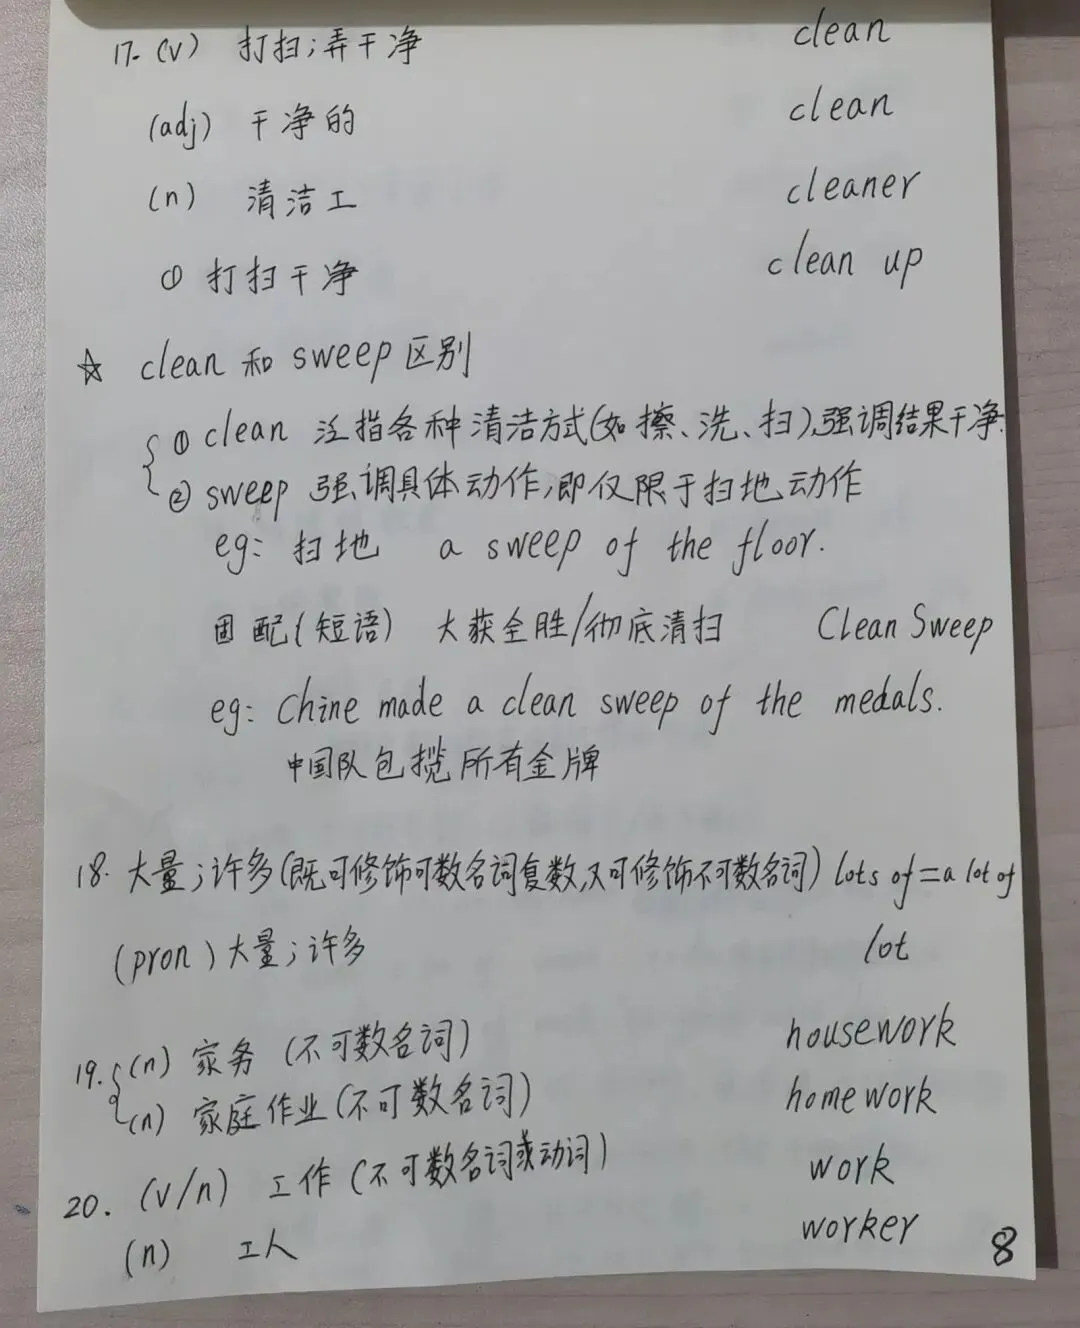 17. (v) 打扫;弄干净 clean
(adj) 干净的 clean
(n) 清洁工 cleaner
① 打扫干净 clean up
☆ clean 和 sweep 区别
① clean 泛指各种清洁方式(如擦、洗、扫),强调结果干净.
② sweep 强调具体动作,即仅限于扫地动作
eg: 扫地 a sweep of the floor.
固配(短语) 大获全胜/彻底清扫 Clean Sweep
eg: Chine made a clean sweep of the medals.
中国队包揽所有金牌
18. 大量;许多(既可修饰可数名词复数,又可修饰不可数名词) lots of=a lot of
(pron) 大量;许多 lot
19. (n) 家务 (不可数名词) housework
(n) 家庭作业(不可数名词) homework
20. (v/n) 工作 (不可数名词或动词) work
(n) 工人 worker
8